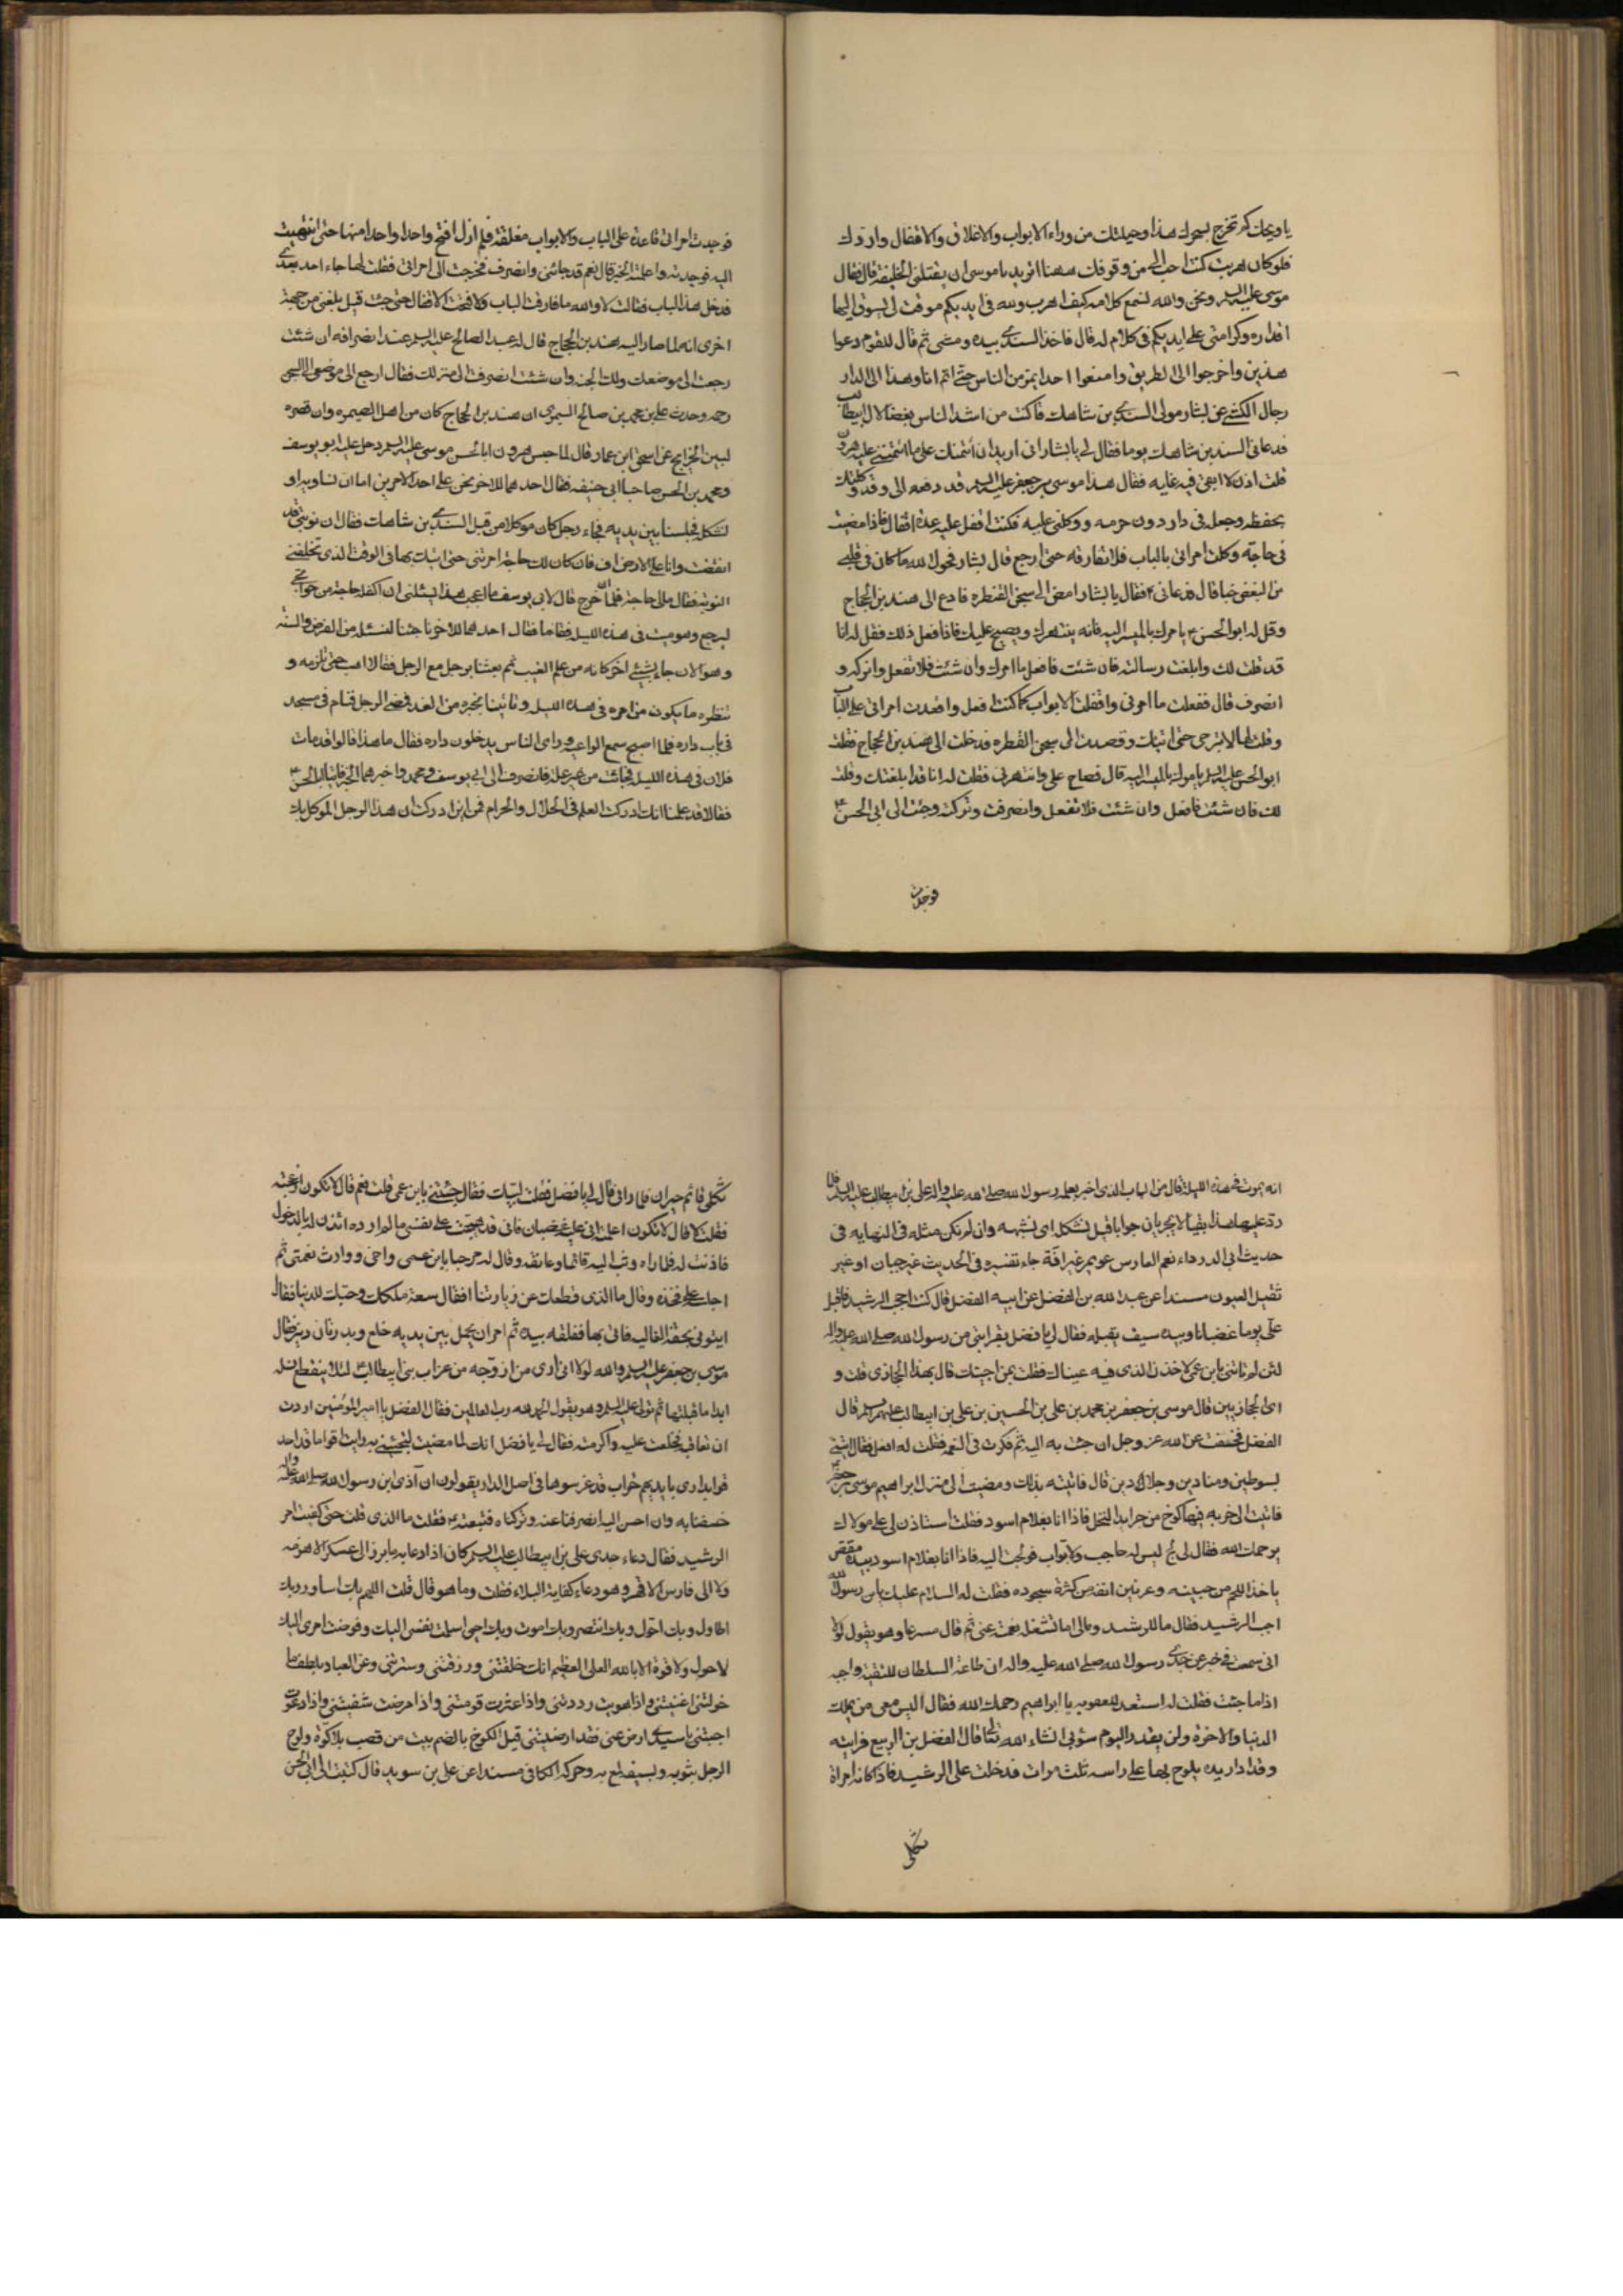 يا ويحك كم تخرج لسحرك هذا وحيلتك من وراء الابواب والاغلاق والاقفال واردك
فلو كان هربت كنت احب الى من وقوفك ههنا اتريد يا موسى ان يقتلنى الخليفة قال فقال
موسى عليه السلم ونحن والله نسمع كلامه كيف اهرب ولله فى ايديكم موقت لى يسوق اليها
اقداره وكرامتى على ايديكم فى كلام له قال فاخذ السندى بيده ومشى ثم قال للقوم دعوا
هذين واخرجوا الى الطريق وامنعوا احدا يمر من الناس حتى اتم انا وهذا الى الدار
رجال الكشى عن بشار مولى السندى بن شاهك قال كنت من اشد الناس بغضا لال ابيطالب
فدعانى السندى بن شاهك يوما فقال لى يا بشار انى اريد ان أئتمنك على ما ائتمننى عليه هرون
قلت اذن لا ابقى فيه غايه فقال هذا موسى بن جعفر عليه السلم قد دفعه الى وقد وكلتك
بحفظه وجعله فى دار دون حرمه ووكلنى عليه فكنت اقفل عليه عدة اقفال فاذا مضيت
فى حاجة وكلت امراتى بالباب فلا تفارقه حتى ارجع قال بشار فحول الله ما كان فى قلبى
من البغض حبا قال فدعانى ع فقال يا بشار امض الى سجن القنطره فادع الى هند بن الحجاج
وقل له ابو الحسن ع يامرك بالمسير اليه فانه ينتهرك ويصيح عليك فاذا فعل ذلك فقل له انا
قد قلت لك وابلغت رسالته فان شئت فافعل ما امرك وان شئت فلا تفعل واتركه و
انصرف قال ففعلت ما امرنى واقفلت الابواب كما كنت افعل واقعدت امراتى على الباب
وقلت لها لا تبرحى حتى اتيك وقصدت الى سجن القنطره فدخلت الى هند بن الحجاج فقلت
ابو الحسن عليه السلم يامرك بالمسير اليه قال فصاح على وانتهرنى فقلت له انا قد ابلغتك وقلت
لك فان شئت فافعل وان شئت فلا تفعل وانصرفت وتركته وجئت الى ابى الحسن ع
فوجدت
فوجدت امراتى قاعدة على الباب والابواب مغلقة فلم ازل افتح واحدا واحدا منها حتى انتهيت
اليه فوجدته واعلمته الخبر قال نعم قد جائنى وانصرف فخرجت الى امراتى فقلت لها جاء احد بعدى
فدخل هذا الباب فقالت لا والله ما فارقت الباب ولا فتحت الاقفال حتى جئت قيل بلغنى من جهة
اخرى انه لما صار اليه هند بن الحجاج قال له عبد الصالح عليه السلم عند انصرافه ان شئت
رجعت الى موضعك ولك الجنه وان شئت انصرفت الى منزلك فقال ارجع الى موضعى الى السجن
رحمه وحدث على بن محمد بن صالح السيمرى ان هند بن الحجاج كان من اهل الصيمره وان قصره
لبين الخرايج عن اسحق ابن عمار قال لما حبس هرون ابا الحسن موسى عليه السلم دخل عليه ابو يوسف
ومحمد بن الحسن صاحبا ابى حنيفه فقال احدهما للاخر نحن على احد الامرين اما ان نساويه او
نشكله فجلسا بين يديه فجاء رجل كان موكلا من قبل السندى بن شاهك فقال ان نوبتى قد
انقضت وانا على الانصراف فان كان لك حاجة امرتنى حتى اتيك بها فى الوقت الذى تخلفنى
النوبة فقال مالى حاجة فلما خرج قال لابى يوسف ما اعجب هذا يسئلنى ان اكلفه حاجة من حوائجى
ليرجع وهو ميت فى هذه الليل فقاما فقال احدهما للاخر انا جئنا لنسئله من الفرض والسنه
وهو الان جاء بشئ اخر كانه من علم الغيب ثم بعثا برجل مع الرجل فقالا اذهب حتى تلزمه و
تنظره ما يكون من امره فى هذه الليل وتاتينا بخبره من الغد فمضى الرجل فنام فى مسجد
فى باب داره فلما اصبح سمع الواعية وراى الناس يدخلون داره فقال ما هذا قالوا قد مات
فلان فى هذه الليل فجائة من غير علة فانصرف الى ابى يوسف ومحمد واخبرهما الخبر فاتيا ابا الحسن ع
فقالا قد علمنا انك ادركت العلم فى الحلال والحرام فمن اين ادركت ان هذا الرجل الموكل بك
انه يموت فى هذه الليلة قال من الباب الذى اخبر بعلمه رسول الله صلى الله عليه واله على بن ابيطالب عليه السلم فلما
رد عليهما هذا بقيا لا يحريان جوابا قيل نشكله اى نشبهه وان لم نكن مثله فى النهايه فى
حديث ابى الدرداء نعم الفارس عويمر غير افة جاء تفسيره فى الحديث غير جبان او غير
ثقيل العيون مسندا عن عبد الله بن الفضل عن ابيه الفضل قال كنت احجب الرشيد فاقبل
على يوما غضبانا وبيده سيف يقلبه فقال لى يا فضل بقرابتى من رسول الله صلى الله عليه واله
لئن لم تاتنى بابن عمى لاخذن الذى فيه عيناك فقلت بمن اجيئك قال بهذا الحجازى قلت و
اى الحجازيين قال موسى بن جعفر بن محمد بن على بن الحسين بن على بن ابيطالب عليهم السلم قال
الفضل فخفت من الله عز وجل ان جئت به اليه ثم فكرت فى النقمه فقلت له افعل فقال ائتنى
بسوطين ومنادين وجلادين قال فاتيته بذلك ومضيت الى منزل ابراهيم موسى بن جعفر
فاتيت الى خربه فيها كوخ من جرايد النخل فاذا انا بغلام اسود فقلت استاذن لى على مولاك
يرحمك الله فقال لى لج ليس له حاجب ولا بواب فولجت اليه فاذا انا بغلام اسود بيده مقص
ياخذ اللحم من جبينه وعرنين انفه من كثرة سجوده فقلت له السلام عليك يابن رسول الله
اجب الرشيد فقال ما للرشيد ومالى اما تشغله نعمته عنى ثم قال مسرعا وهو يقول لولا
انى سمعت فى خبر عن جدى رسول الله صلى الله عليه واله ان طاعة السلطان للتقية واجبه
اذا ما جئت فقلت له استعد للعقوبه يا ابراهيم رحمك الله فقال اليس معى من يملك
الدنيا والاخرة ولن يقدر اليوم سؤبى انشاء الله تعالى قال الفضل بن الربيع فرايته
وقد ادار يده يلوح بها على راسه ثلث مرات فدخلت على الرشيد فاذا كانه امراة
ثكلى
ثكلى قائم حيران فلما رانى قال لى يا فضل فقلت لبيك فقال جئتنى بابن عمى قلت نعم قال لا تكون ازعجته
فقلت لا قال لا تكون اعلمته انى عليه غضبان فانى قد هيجت على نفسى ما لم ارده ائذن له بالدخول
فاذنت له فلما راه وثب اليه قائما وعانقه وقال له مرحبا بابن عمى واخى ووارث نعمتى ثم
اجلسه على فخذه وقال ما الذى قطعك عن زيارتنا فقال سعة ملكك وحبك للدنيا فقال
ايتونى بحقة الغاليه فاتى بها فغلفه بيده ثم امر ان يحمل بين يديه خلع وبدرتان دينر فقال
موسى بن جعفر عليه السلم والله لولا انى ارى من ازوجه من عزاب بنى ابيطالب لئلا ينقطع نسله
ابدا ما قبلتها ثم تولى عليه السلم وهو يقول الحمد لله رب العالمين فقال الفضل يا امير المؤمنين اردت
ان تعاقبه فخلعت عليه واكرمته فقال لى يا فضل انك لما مضيت لتجيئنى به رايت اقواما قد احد
قوا بدارى بايديهم حراب قد غرسوها فى اصل الدار يقولون ان آذى ابن رسول الله صلى الله عليه واله
خسفنا به وان احسن اليه انصرفنا عنه وتركناه فتبعته ع فقلت ما الذى قلت حتى كفيت امر
الرشيد فقال دعاء جدى على بن ابيطالب عليه السلم كان اذا دعا به ما برز الى عسكر الا هزمه
ولا الى فارس الا قهره وهو دعاء كفاية البلاء فقلت وما هو قال قلت اللهم بك اساور وبك
احاول وبك احول وبك انتصر وبك اموت وبك احيى اسلمت نفسى اليك وفوضت امرى اليك
لا حول ولا قوة الا بالله العلى العظيم انك خلقتنى ورزقتنى وسترتنى وعن العباد بلطف ما
خولتنى اغنيتنى واذا هويت رددتنى واذا عثرت قومتنى واذا مرضت شفيتنى واذا دعوت
اجبتنى يا سيدى ارض عنى فقد ارضيتنى قيل الكوخ بالضم بيت من قصب بلا كوة ولوح
الرجل بثوبه وبسيفه لمع به وحركه الكافى مسندا عن على بن سويد قال كتبت الى ابى الحسن